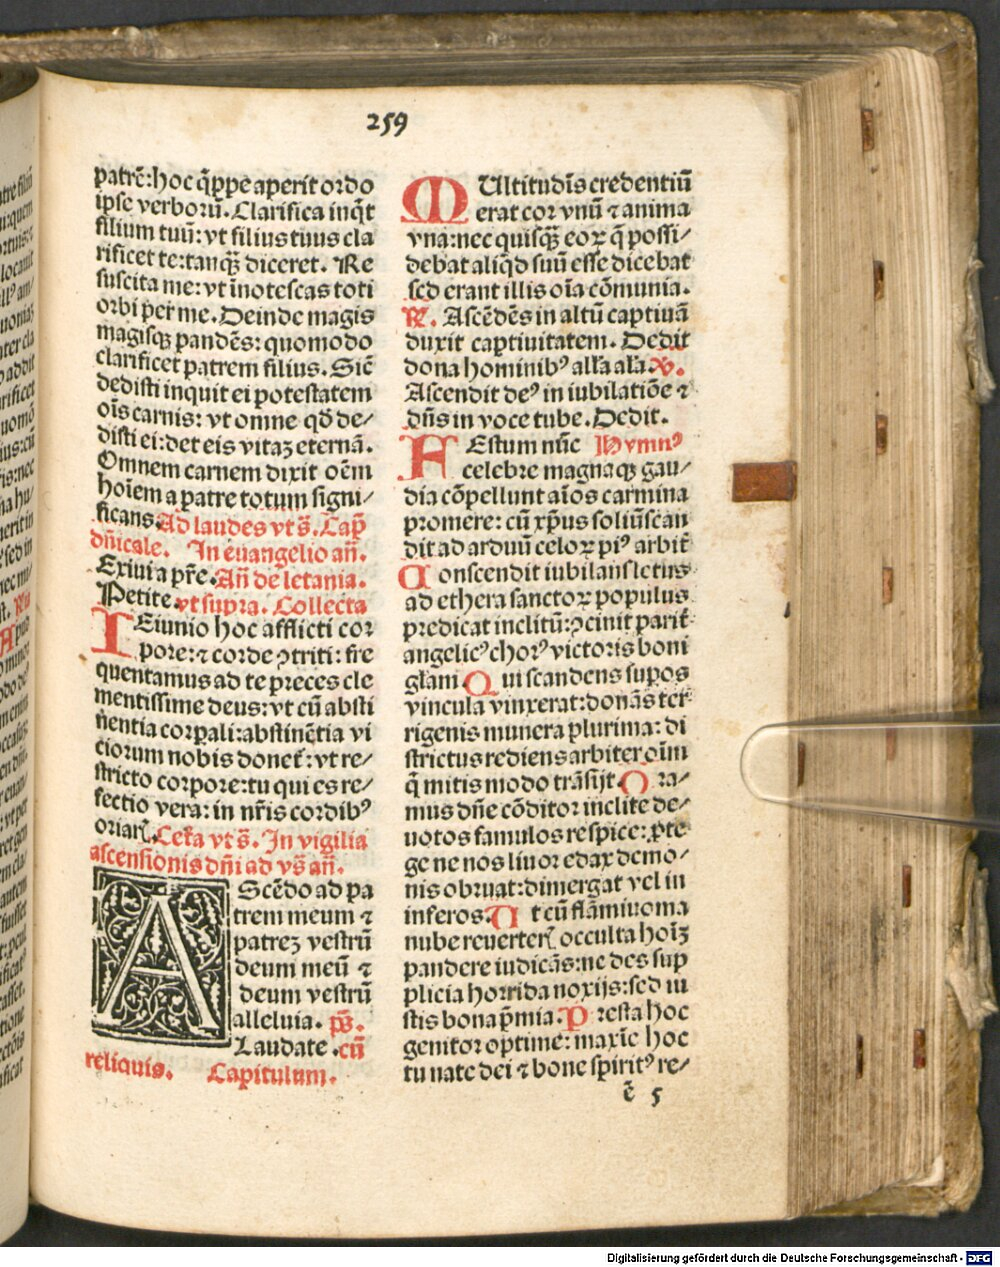 259
patrē:hoc q̄ppe aperit ordo
ipse verborū. Clarifica inq̄t
filium tuū: vt filius tuus cla
rificet te: tanq̄ꝫ diceret. Re
suscita me: vt īnotescas toti
orbi per me. Deinde magis
magisqꝫ pandēs: quomodo
clarificet patrem filius. Sic̄
dedisti inquit ei potestatem
oīs carnis: vt omne qđ de/
disti ei: det eis vitaꝫ eternā.
Omnem carnem dixit oēm
hoīem a patre totum signi/
ficans. Ad laudes vt s̄. Cap̄
dn̄icale. In euangelio an̄.
Exiui a pr̄e. An̄ de letania.
Petite. vt supra. Collecta
IEiunio hoc afflicti cor
pore: ⁊ corde ꝯtriti: fre
quentamus ad te preces cle
mentissime deus: vt cū absti
nentia corpali: abstinētia vi
ciorum nobis donet̄: vt re/
stricto corpore: tu qui es re/
fectio vera: in nr̄is cordibꝰ
oriar̄. Cet̄a vt s̄. In vigilia
ascensionis dn̄i ad vs̄ an̄.
AScēdo ad pa
trem meum ⁊
patreꝫ vestrū
deum meū ⁊
deum vestrū
alleluia. ps̄.
Laudate . cū
reliquis. Capitulum.
MUltitudīs credentiū
erat cor vnū ⁊ anima
vna: nec quisqꝫ̄ eoꝝ q̄ possi/
debat aliq̄d suū esse dicebat
sed erant illis oīa cōmunia.
℟. Ascēdēs in altū captiuā
duxit captiuitatem. Dedit
dona hominibꝰ alła ała. ℣.
Ascendit deꝰ in iubilatiōe ⁊
dn̄s in voce tube. Dedit.
FEstum nūc Hymnꝰ
celebre magnaqꝫ gau/
dia cōpellunt aīos carmina
promere: cū xp̄us soliū scan
dit ad arduū celoꝝ piꝰ arbit̄
Conscendit iubilans letus
ad ethera sanctoꝝ populus
predicat inclitū: ꝯcinit parit̄
angelicꝰ chorꝰ victoris boni
glam̄. Qui scandens supos
vincula vinxerat: donās ter
rigenis munera plurima: di
strictus rediens arbiter oīm
q̄ mitis modo trāsijt. Ora/
mus dn̄e cōditor inclite de/
uotos famulos respice: ꝓte/
ge ne nos liuor edax demo/
nis obruat: dimergat vel in
inferos. Ut cū flāmiuoma
nube reuerter̄ occulta hoīꝫ
pandere iudicās: ne des sup
plicia horrida noxijs: sed iu
stis bona p̄mia. Presta hoc
genitor optime: maxīe hoc
tu nate dei ⁊ bone spiritꝰ re/
ē 5
Digitalisierung gefördert durch die Deutsche Forschungsgemeinschaft - DFG